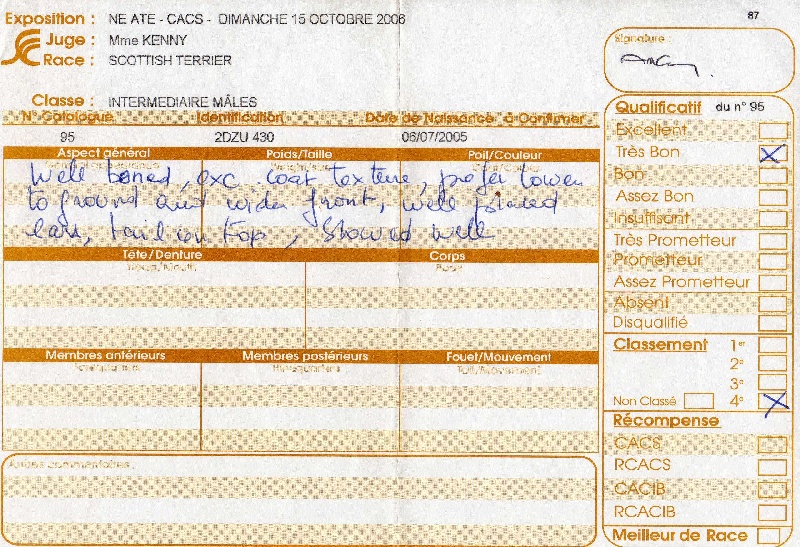 Exposition : NE ATE - CACS - DIMANCHE 15 OCTOBRE 2006
87
Juge : Mme KENNY
Race : SCOTTISH TERRIER
Signature :
Classe : INTERMEDIAIRE MÂLES
N° Catalogue Identification Date de Naissance à Confirmer
95 2DZU 430 06/07/2005
Aspect général Poids/Taille Poil/Couleur
Well boned, exc coat texture, prefer lower
to ground and wider front, well placed
ears, tail on top, showed well
Tête/Denture Corps
Head/Mouth Body
Membres antérieurs Membres postérieurs Fouet/Mouvement
Forequarters Hindquarters Tail/Movement
Autres commentaires :
Qualificatif du n° 95
Excellent
Très Bon X
Bon
Assez Bon
Insuffisant
Très Prometteur
Prometteur
Assez Prometteur
Absent
Disqualifié
Classement 1er
2e
3e
Non Classé 4e X
Récompense
CACS
RCACS
CACIB
RCACIB
Meilleur de Race